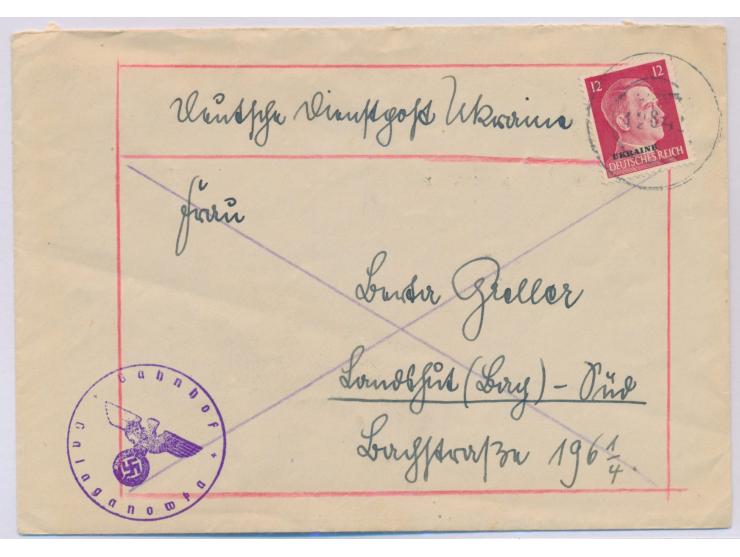 Deutsche Dienstpost Ukraine
12 12
UKRAINE
DEUTSCHES REICH
Frau
Berta Greller
Landshut (Bay) - Süd
Bachstraße 196 1/4
Bahnhof